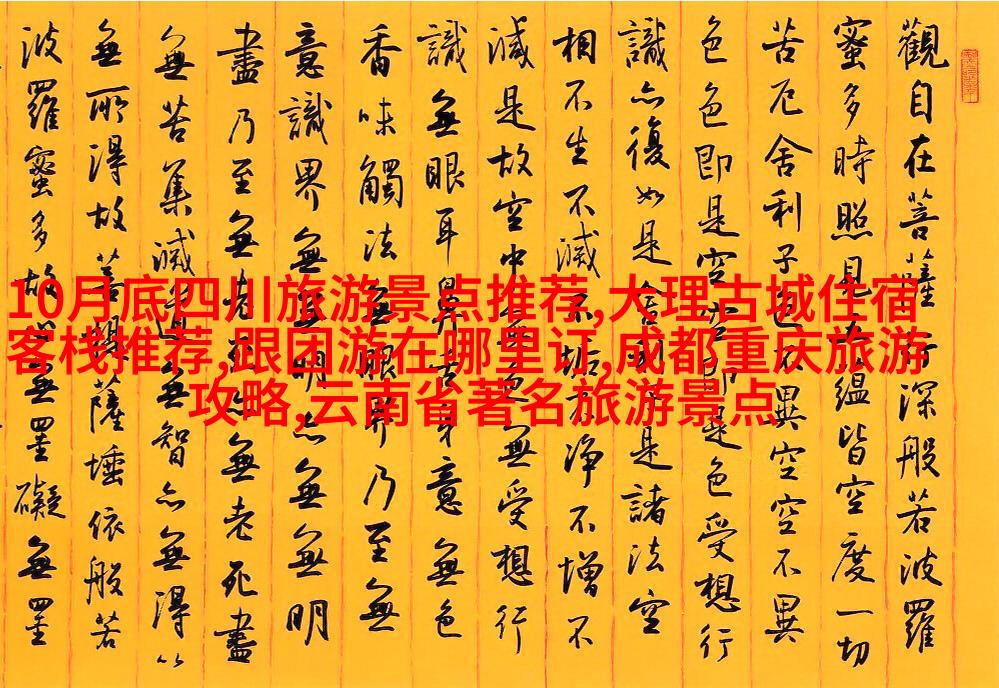 觀自在菩薩行深般若波羅
蜜多時照見五蘊皆空度一切
苦厄舍利子色不異空空不異
色色即是空空即是色受想行
識亦復如是舍利子是諸法空
相不生不滅不垢不淨不增不
減是故空中無色無受想行
識無眼耳鼻舌身意無色
香味觸法無眼界乃至無
意識界無無明亦無無明
盡乃至無老死亦無老死盡
無苦集滅道無智亦無得以
無所得故菩提薩埵依般若
波羅蜜多故心無罣礙無罣
10月底四川旅游景点推荐,大理古城住宿
客栈推荐,跟团游在哪里订,成都重庆旅游
攻略,云南省著名旅游景点